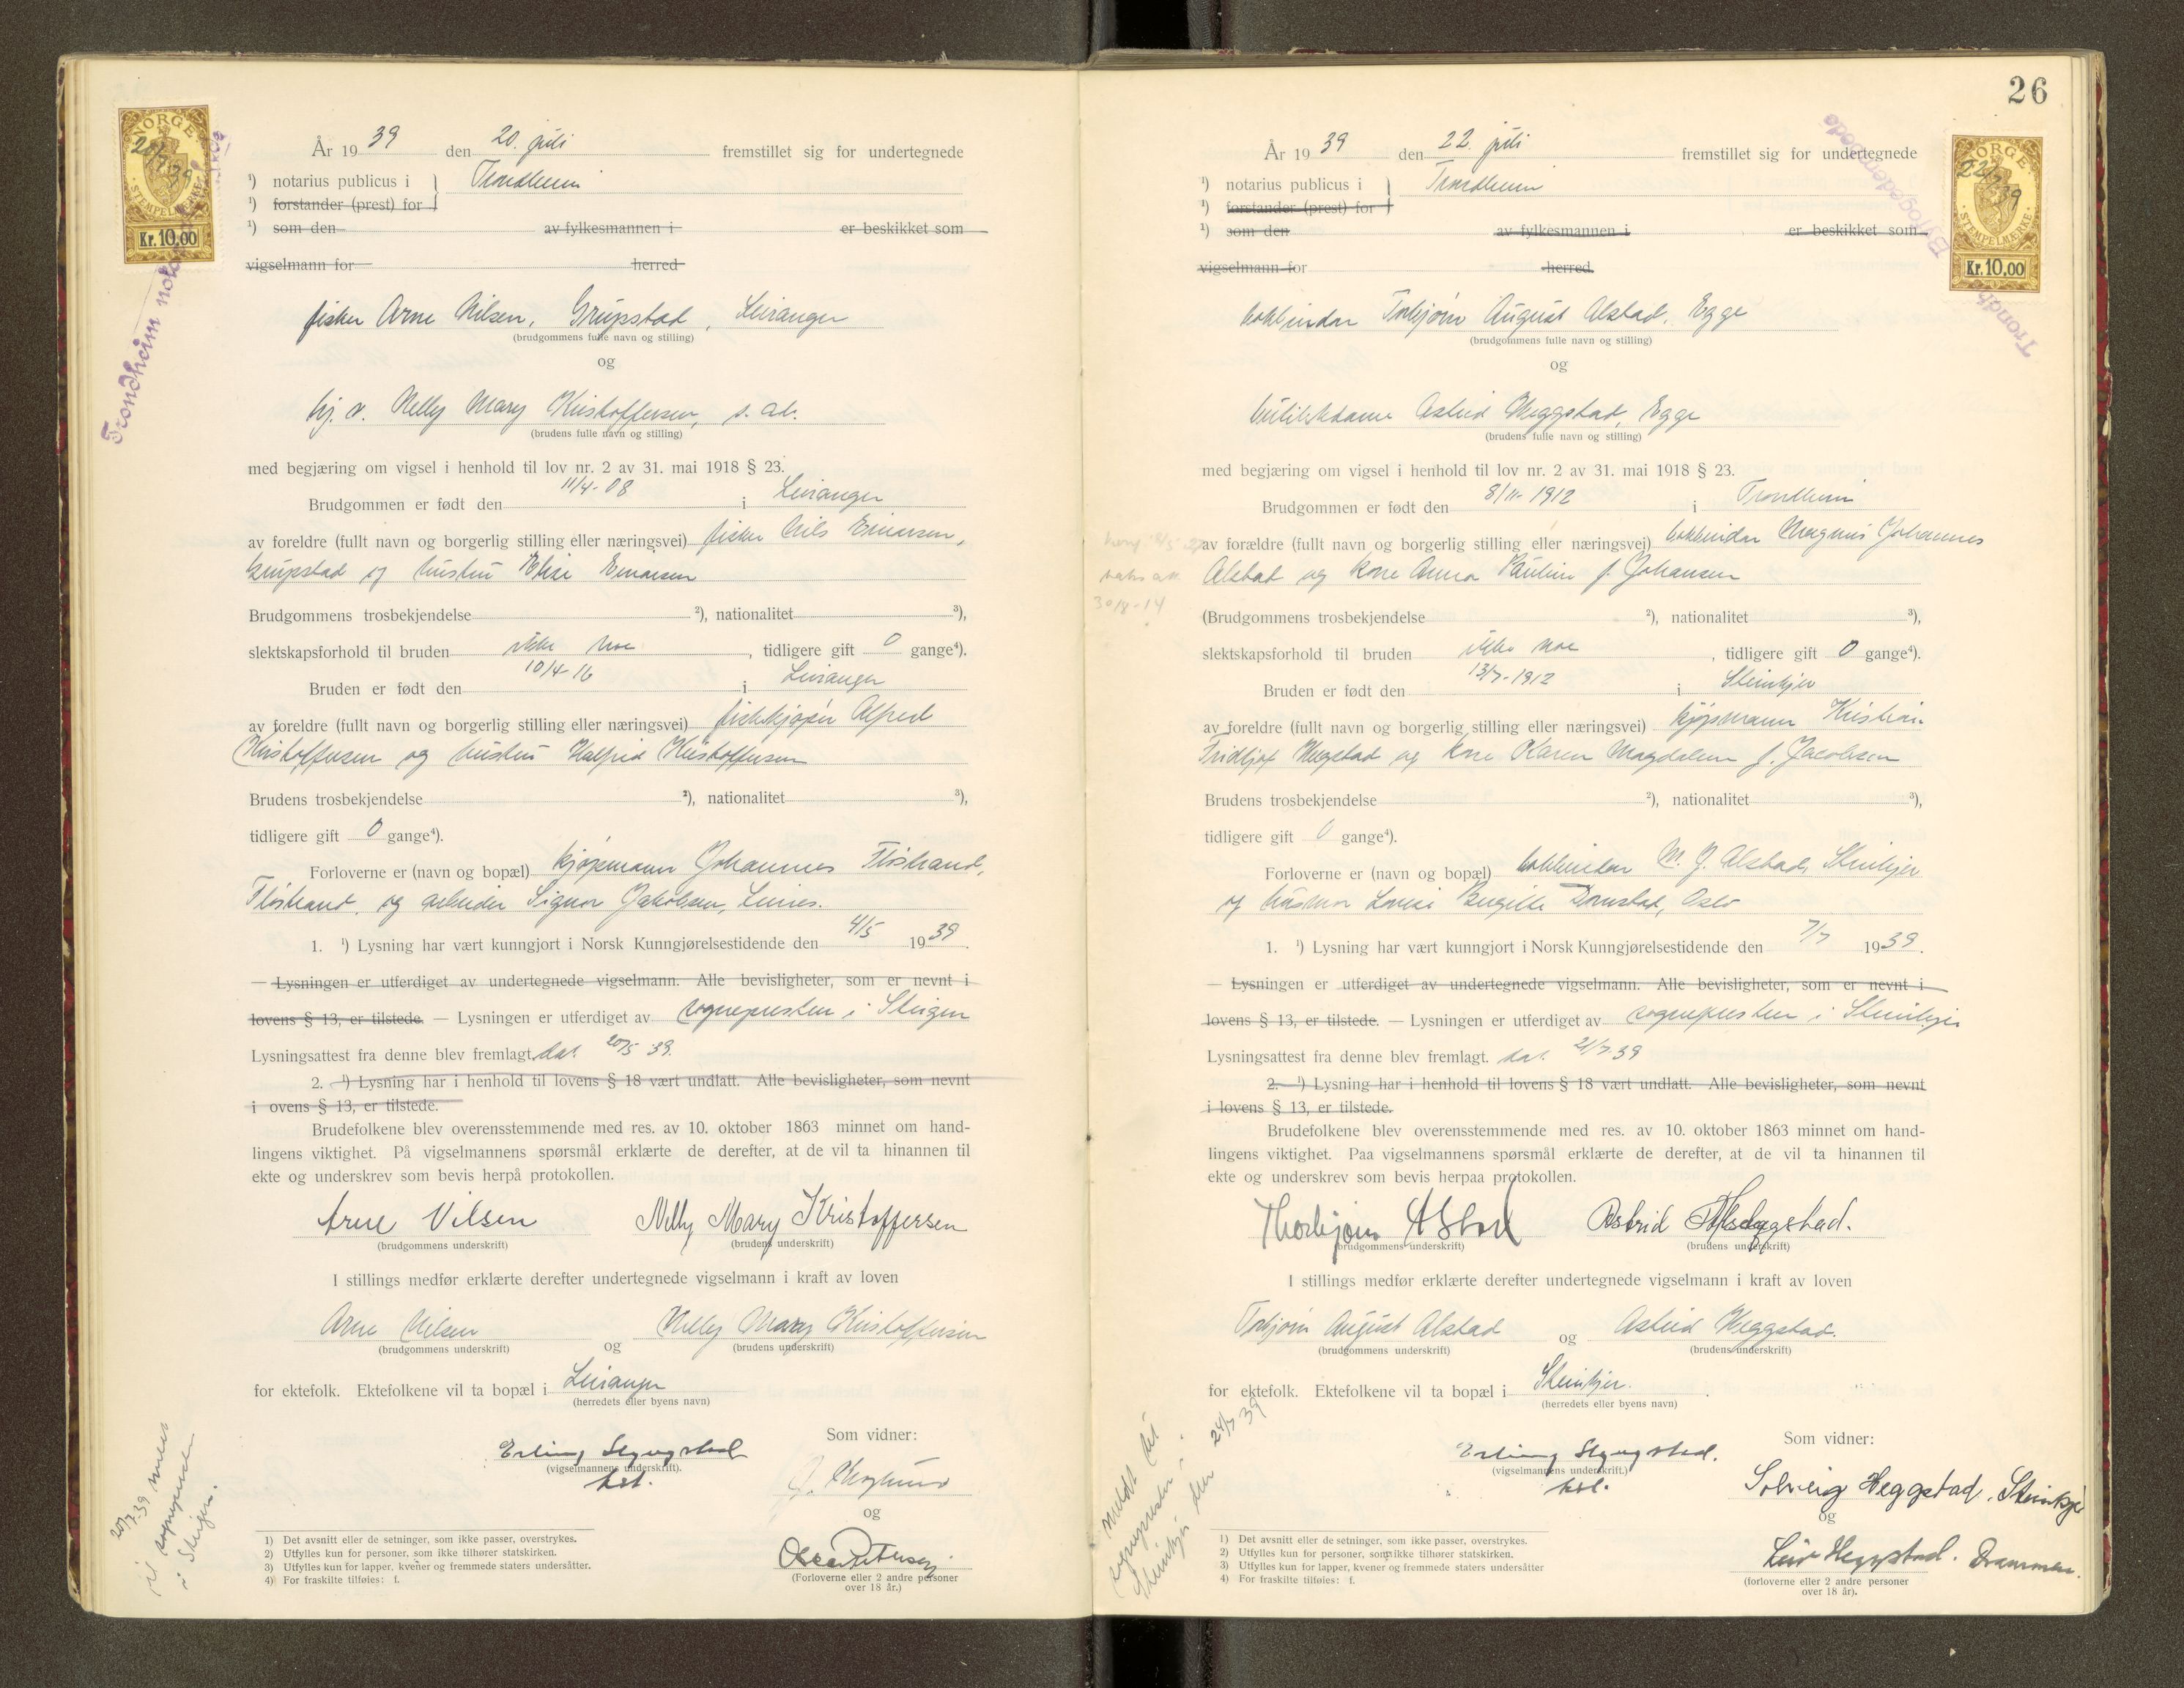 NORGE
20/7 39
STEMPELMERKE
Kr. 10,00
Trondheim
År 1939 den 20. juli fremstillet sig for undertegnede
¹) notarius publicus i } Trondheim
¹) forstander (prest) for
¹) som den av fylkesmannen i er beskikket som
vigselmann for herred
fisker Arne Nilsen, Grupstad, Leiranger
(brudgommens fulle navn og stilling)
og
hj. v. Nelly Mary Kristoffersen, s. st.
(brudens fulle navn og stilling)
med begjæring om vigsel i henhold til lov nr. 2 av 31. mai 1918 § 23.
Brudgommen er født den 11/4-08 i Leiranger
av foreldre (fullt navn og borgerlig stilling eller næringsvei) fisker Nils Einarsen,
Grupstad og hustru Elise Einarsen
Brudgommens trosbekjendelse ²), nationalitet ³),
slektskapsforhold til bruden ikke noe, tidligere gift 0 gange⁴).
Bruden er født den 10/4-16 i Leiranger
av foreldre (fullt navn og borgerlig stilling eller næringsvei) fiskekjøper Alfred
Kristoffersen og hustru Halfrid Kristoffersen
Brudens trosbekjendelse ²), nationalitet ³),
tidligere gift 0 gange⁴).
Forloverne er (navn og bopæl) kjøpmann Johannes Fløstrand,
Fløstrand, og arbeider Signor Jakobsen, Leines.
1. ¹) Lysning har vært kunngjort i Norsk Kunngjørelsestidende den 4/5 1939.
— Lysningen er utferdiget av undertegnede vigselmann. Alle bevisligheter, som er nevnt i
lovens § 13, er tilstede. — Lysningen er utferdiget av sognepresten i Steigen
Lysningsattest fra denne blev fremlagt dat. 20/5 39.
2. ¹) Lysning har i henhold til lovens § 18 vært undlatt. Alle bevisligheter, som nevnt
i ovens § 13, er tilstede.
Brudefolkene blev overensstemmende med res. av 10. oktober 1863 minnet om hand-
lingens viktighet. På vigselmannens spørsmål erklærte de derefter, at de vil ta hinannen til
ekte og underskrev som bevis herpå protokollen.
Arne Nilsen Nelly Mary Kristoffersen
(brudgommens underskrift) (brudens underskrift)
I stillings medfør erklærte derefter undertegnede vigselmann i kraft av loven
Arne Nilsen og Nelly Mary Kristoffersen
(brudgommens underskrift) (brudens underskrift)
for ektefolk. Ektefolkene vil ta bopæl i Leiranger
(herredets eller byens navn)
Som vidner:
Erling Slyngstad
(vigselmannens underskrift).
kst.
og
(Forloverne eller 2 andre personer
over 18 år.)
20/7 39 meldt
til sognepresten
i Steigen.
1) Det avsnitt eller de setninger, som ikke passer, overstrykes.
2) Utfylles kun for personer, som ikke tilhører statskirken.
3) Utfylles kun for lapper, kvener og fremmede staters undersåtter.
4) For fraskilte tilføies: f.
26
NORGE
22/7 39
STEMPELMERKE
Kr. 10,00
Byfogedembede
Trondh
År 1939 den 22. juli fremstillet sig for undertegnede
¹) notarius publicus i } Trondheim
¹) forstander (prest) for
¹) som den av fylkesmannen i er beskikket som
vigselmann for herred.
bokbinder Torbjørn August Alstad, Egge
(brudgommens fulle navn og stilling)
og
butikkdame Astrid Heggstad, Egge
(brudens fulle navn og stilling)
med begjæring om vigsel i henhold til lov nr. 2 av 31. mai 1918 § 23.
Brudgommen er født den 8/11-1912 i Trondheim
av forældre (fullt navn og borgerlig stilling eller næringsvei) bokbinder Magnus Johannes
Alstad og kone Anna Pauline f. Johansen
30/8-14
(Brudgommens trosbekjendelse ²), nationalitet ³),
slektskapsforhold til bruden ikke noe, tidligere gift 0 gange⁴).
Bruden er født den 13/7-1912 i Steinkjer
av foreldre (fullt navn og borgerlig stilling eller næringsvei) kjøpmann Kristian
Fridtjof Hegstad og kone Karen Magdalene f. Jacobsen
Brudens trosbekjendelse ²), nationalitet ³),
tidligere gift 0 gange⁴).
Forloverne er (navn og bopæl) bokbinder M. J. Alstad, Steinkjer
og husmor Lovise Bergitte Dornstad, Oslo
1. ¹) Lysning har vært kunngjort i Norsk Kunngjørelsestidende den 7/7 1939.
— Lysningen er utferdiget av undertegnede vigselmann. Alle bevisligheter, som er nevnt i
lovens § 13, er tilstede. — Lysningen er utferdiget av sognepresten i Steinkjer
Lysningsattest fra denne blev fremlagt. dat. 21/7 39
2. ¹) Lysning har i henhold til lovens § 18 vært undlatt. Alle bevisligheter, som nevnt
i lovens § 13, er tilstede.
Brudefolkene blev overensstemmende med res. av 10. oktober 1863 minnet om hand-
lingens viktighet. Paa vigselmannens spørsmål erklærte de derefter, at de vil ta hinannen til
ekte og underskrev som bevis herpaa protokollen.
Thorbjørn Alstad Astrid Heggstad.
(brudgommens underskrift) (brudens underskrift)
I stillings medfør erklærte derefter undertegnede vigselmann i kraft av loven
Torbjørn August Alstad og Astrid Heggstad.
(brudgommens underskrift) (brudens underskrift)
for ektefolk. Ektefolkene vil ta bopæl i Steinkjer.
(herredets eller byens navn)
Som vidner:
Erling Slyngstad.
(vigselmannens underskrift.)
kst.
Solveig Heggstad, Steinkjer
og
Leiv Heggstad. Drammen.
(forloverne eller 2 andre personer
over 18 år).
meldt til
sognepresten i
Steinkjer den 24/7 39
1) Det avsnitt eller de setninger, som ikke passer, overstrykes.
2) Utfylles kun for personer, som ikke tilhører statskirken.
3) Utfylles kun for lapper, kvener og fremmede staters undersåtter
4) For fraskilte tilføies: f.